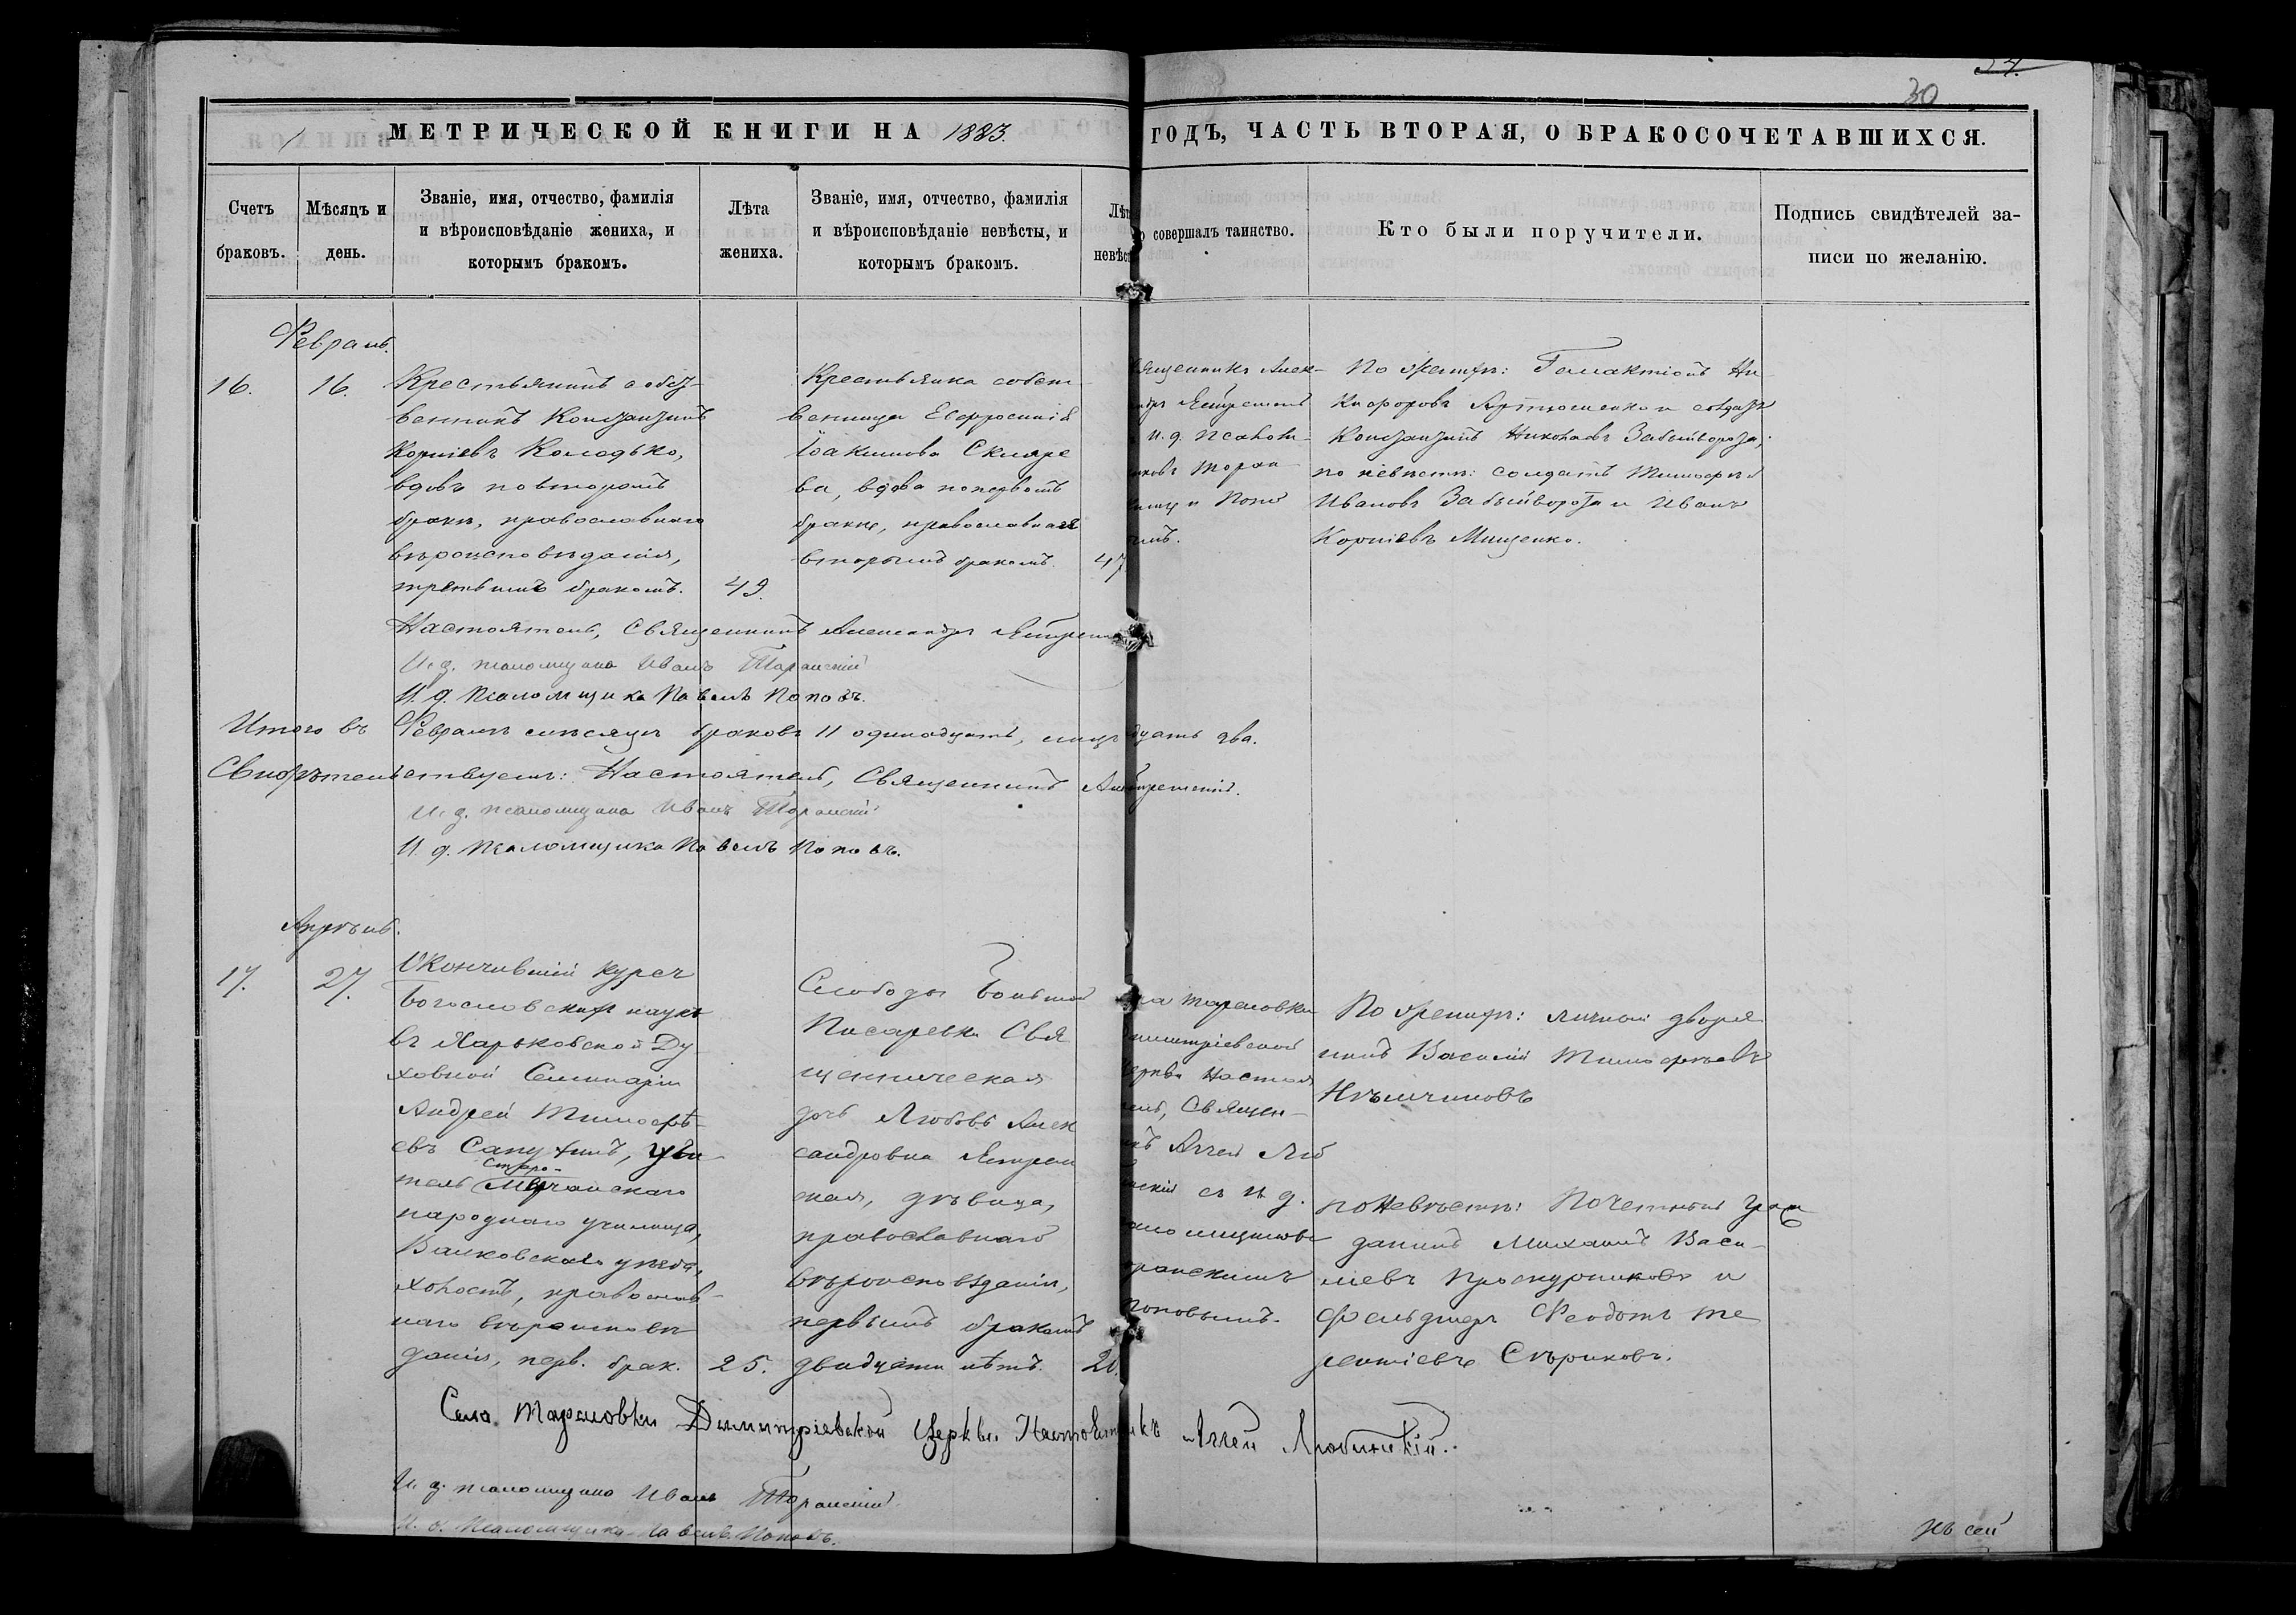 34.
30
МЕТРИЧЕСКОЙ КНИГИ НА 1883. ГОДЪ, ЧАСТЬ ВТОРАЯ, О БРАКОСОЧЕТАВШИХСЯ.
Счетъ браковъ.
Мѣсяцъ и день.
Званіе, имя, отчество, фамилія
и вѣроисповѣданіе жениха, и
которымъ бракомъ.
Лѣта
жениха.
Званіе, имя, отчество, фамилія
и вѣроисповѣданіе невѣсты, и
которымъ бракомъ.
совершалъ таинство.
Кто были поручители.
Подпись свидѣтелей за-
писи по желанію.
Февраль.
16.
16.
Крестьянинъ собст-
венникъ Константинъ
Корніевъ Колодько,
вдовъ по второмъ
бракѣ, православнаго
вѣроисповѣданія,
третьимъ бракомъ.
49.
Крестьянка собст-
венница Евфросинія
Іоакимова Скляре
ва, вдова по первомъ
бракѣ, православная
вторымъ бракомъ.
47
Алек-
и. д. псалом-
и Попо
По женихѣ: Галактіонъ Ни
кифоровъ Артюшенко и солдатъ
Константинъ Николаевъ Забыйворота,
по невѣстѣ: солдатъ Тимофей
Ивановъ Забыйворота и Иванъ
Корніевъ Мищенко.
Настоятель, Священникъ Александръ
И. д. псаломщика Иванъ Торанскій
И. д. Псаломщика Павелъ Поповъ.
Итого въ Февралѣ мѣсяцѣ браковъ 11 одинадцать, лицъ дцать два.
Свидѣтельствуемъ: Настоятель, Священникъ
И. д. псаломщика Иванъ Торанскій
И. д. Псаломщика Павелъ Поповъ.
Апрѣль.
17.
27.
Окончившій курсъ
Богословскихъ наукъ
въ Харьковской Ду
ховной Семинаріи
Андрей Тимофѣ-
евъ Сапухинъ, учи-
Старо-
тель Мерчанскаго
народнаго училища,
Валковскаго уѣзда,
холостъ, православ-
наго вѣроисповѣ
данія, перв. брак.
25.
Слободы Большой
Писаревки Свя
щенническая
дочь Любовь Алек
сандровна Ястрем
ская, дѣвица,
православнаго
вѣроисповѣданія,
первымъ бракомъ
двадцати лѣтъ.
20.
Тарановки
Настоя
Священ-
Аггей Лю
съ и. д.
Поповымъ.
По женихѣ: личный дворя
нинъ Василій Тимофѣевъ
По невѣстѣ: Почетный граж
данинъ Михаилъ Васи-
ліевъ Проскурниковъ и
фельдшеръ Феодотъ Те
рентіевъ Сѣриковъ.
Села Тарановки Димитріевской Церкви Аггей Любицкій.
И. д. псаломщика Иванъ Торанскій.
И. д. Псаломщика Павелъ Поповъ.